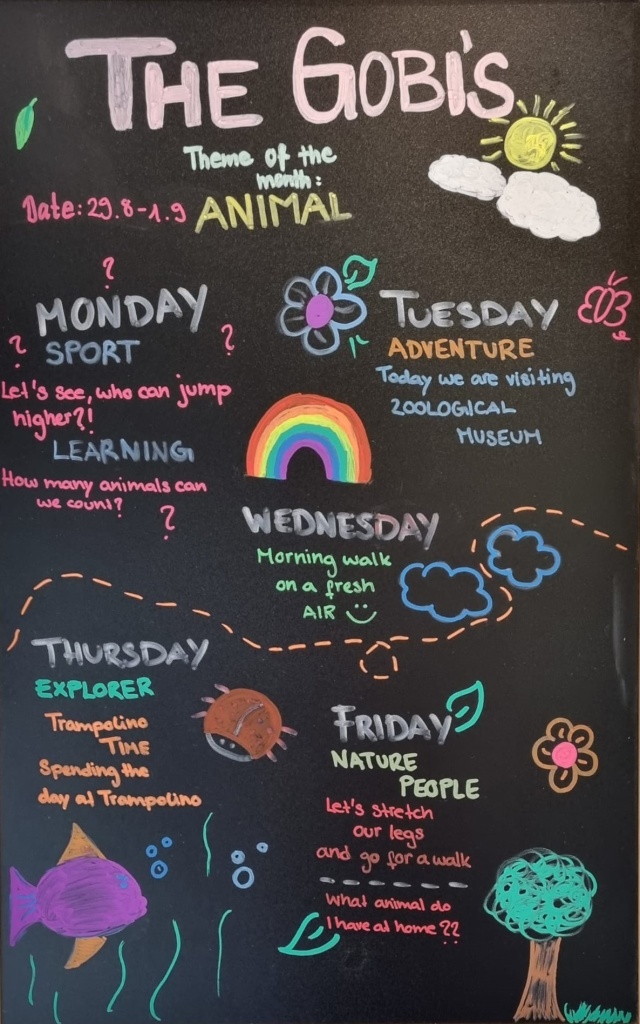 THE GOBI'S
Theme of the
month:
Date: 29.8-1.9 ANIMAL
?
MONDAY
? SPORT ?
Let's see, who can jump
higher?!
LEARNING
How many animals can
we count?
?
TUESDAY
ADVENTURE
Today we are visiting
ZOOLOGICAL
MUSEUM
WEDNESDAY
Morning walk
on a fresh
AIR
THURSDAY
EXPLORER
Trampolino
TIME
Spending the
day at Trampolino
FRIDAY
NATURE
PEOPLE
Let's stretch
our legs
and go for a walk
What animal do
I have at home??